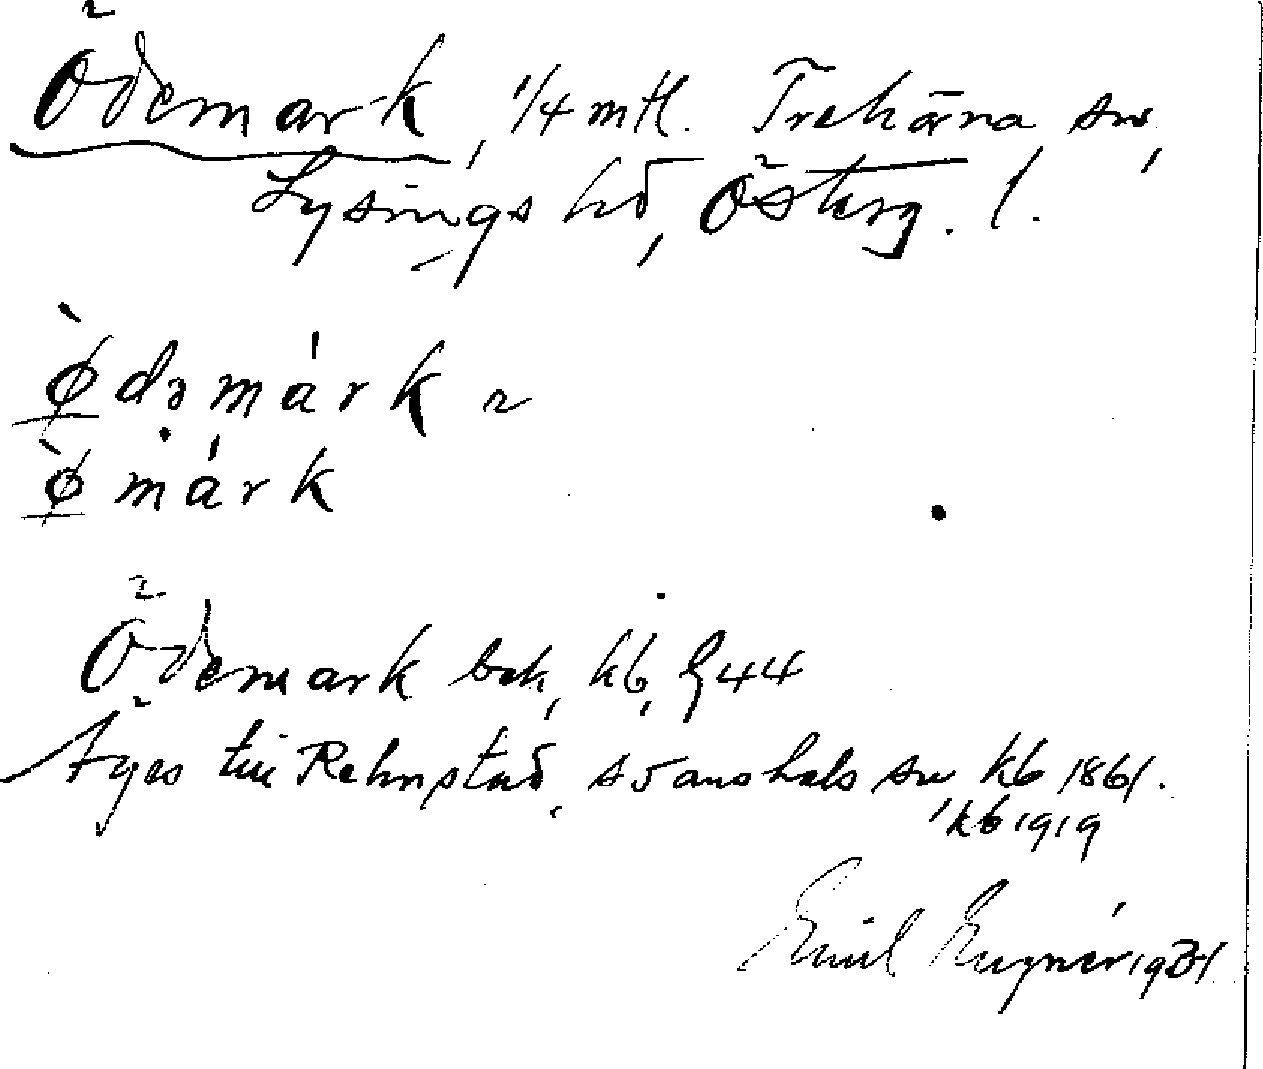 Ödemark, 1/4 mtl. Trehörna sn,
Lysings hd, Österg. l.
ø̀dəmárk ~
ø̀márk
Ödemark bek, kb,
Äges till Rehnstad, Svanhals sn, kb 1861.
kb 1919
Emil 1931